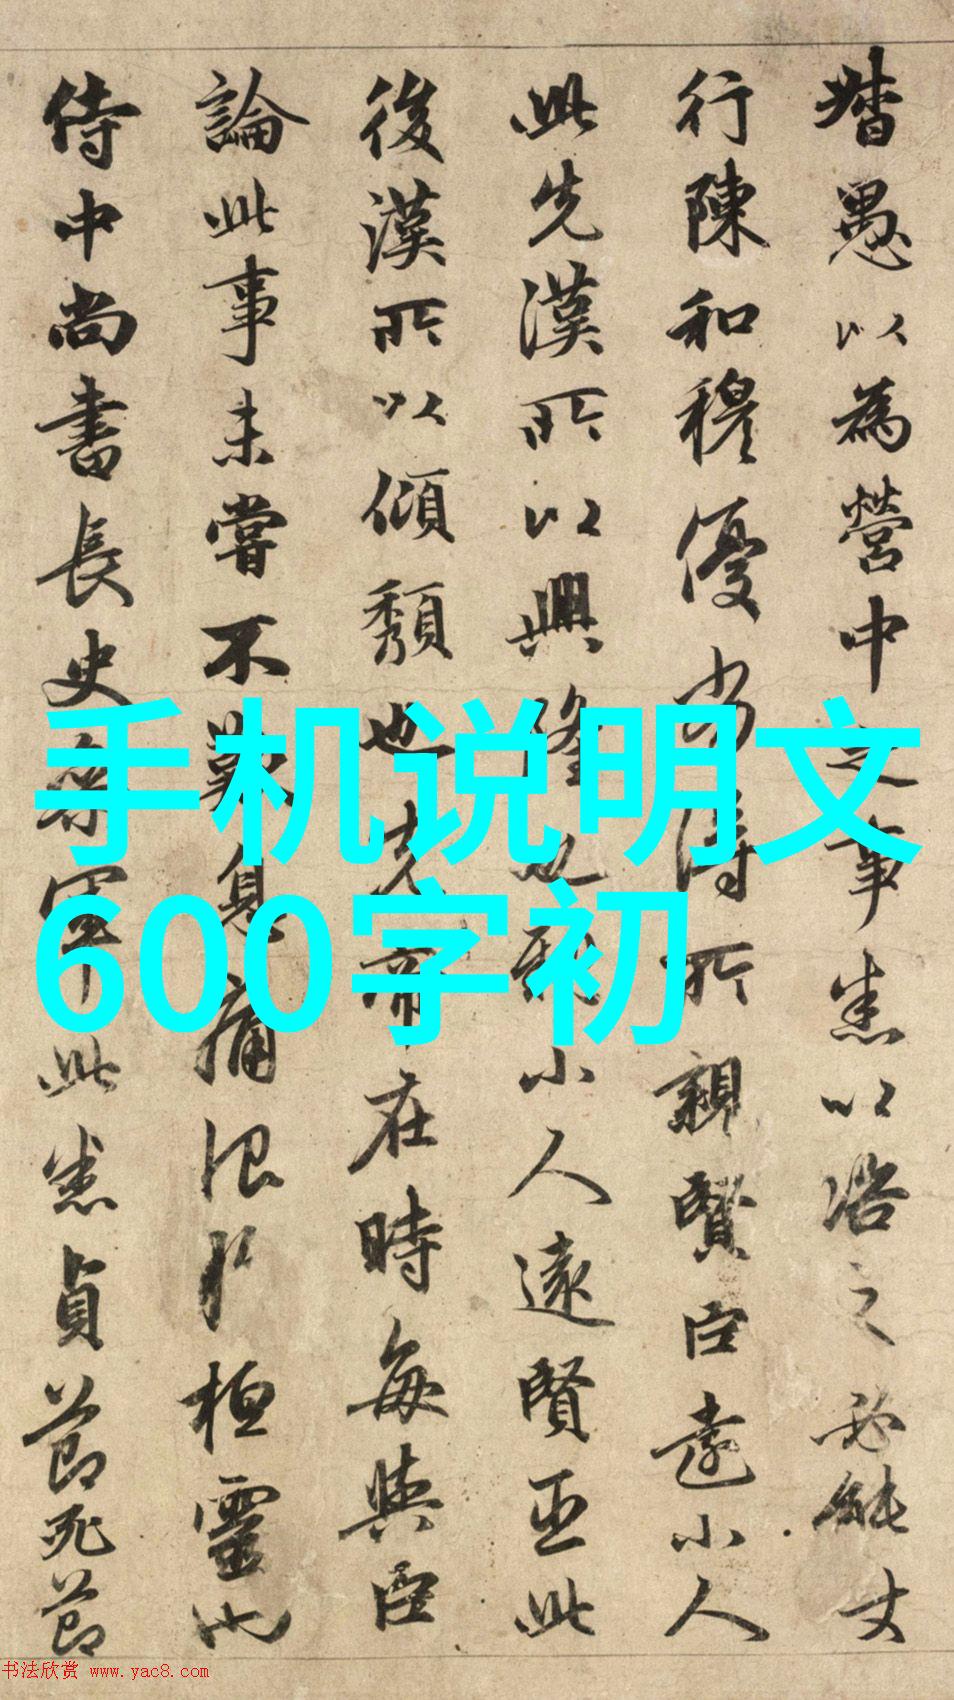 督愚以為營中之事悉以咨之必能使
行陳和穆優劣得所親賢臣遠小人
此先漢所以興隆也親小人遠賢臣此
後漢所以傾頹也先帝在時每與臣
論此事未嘗不歎息痛恨於桓靈也
侍中尚書長史參軍此悉貞節死節
手机说明文
600字初
书法欣赏 www.yac8.com